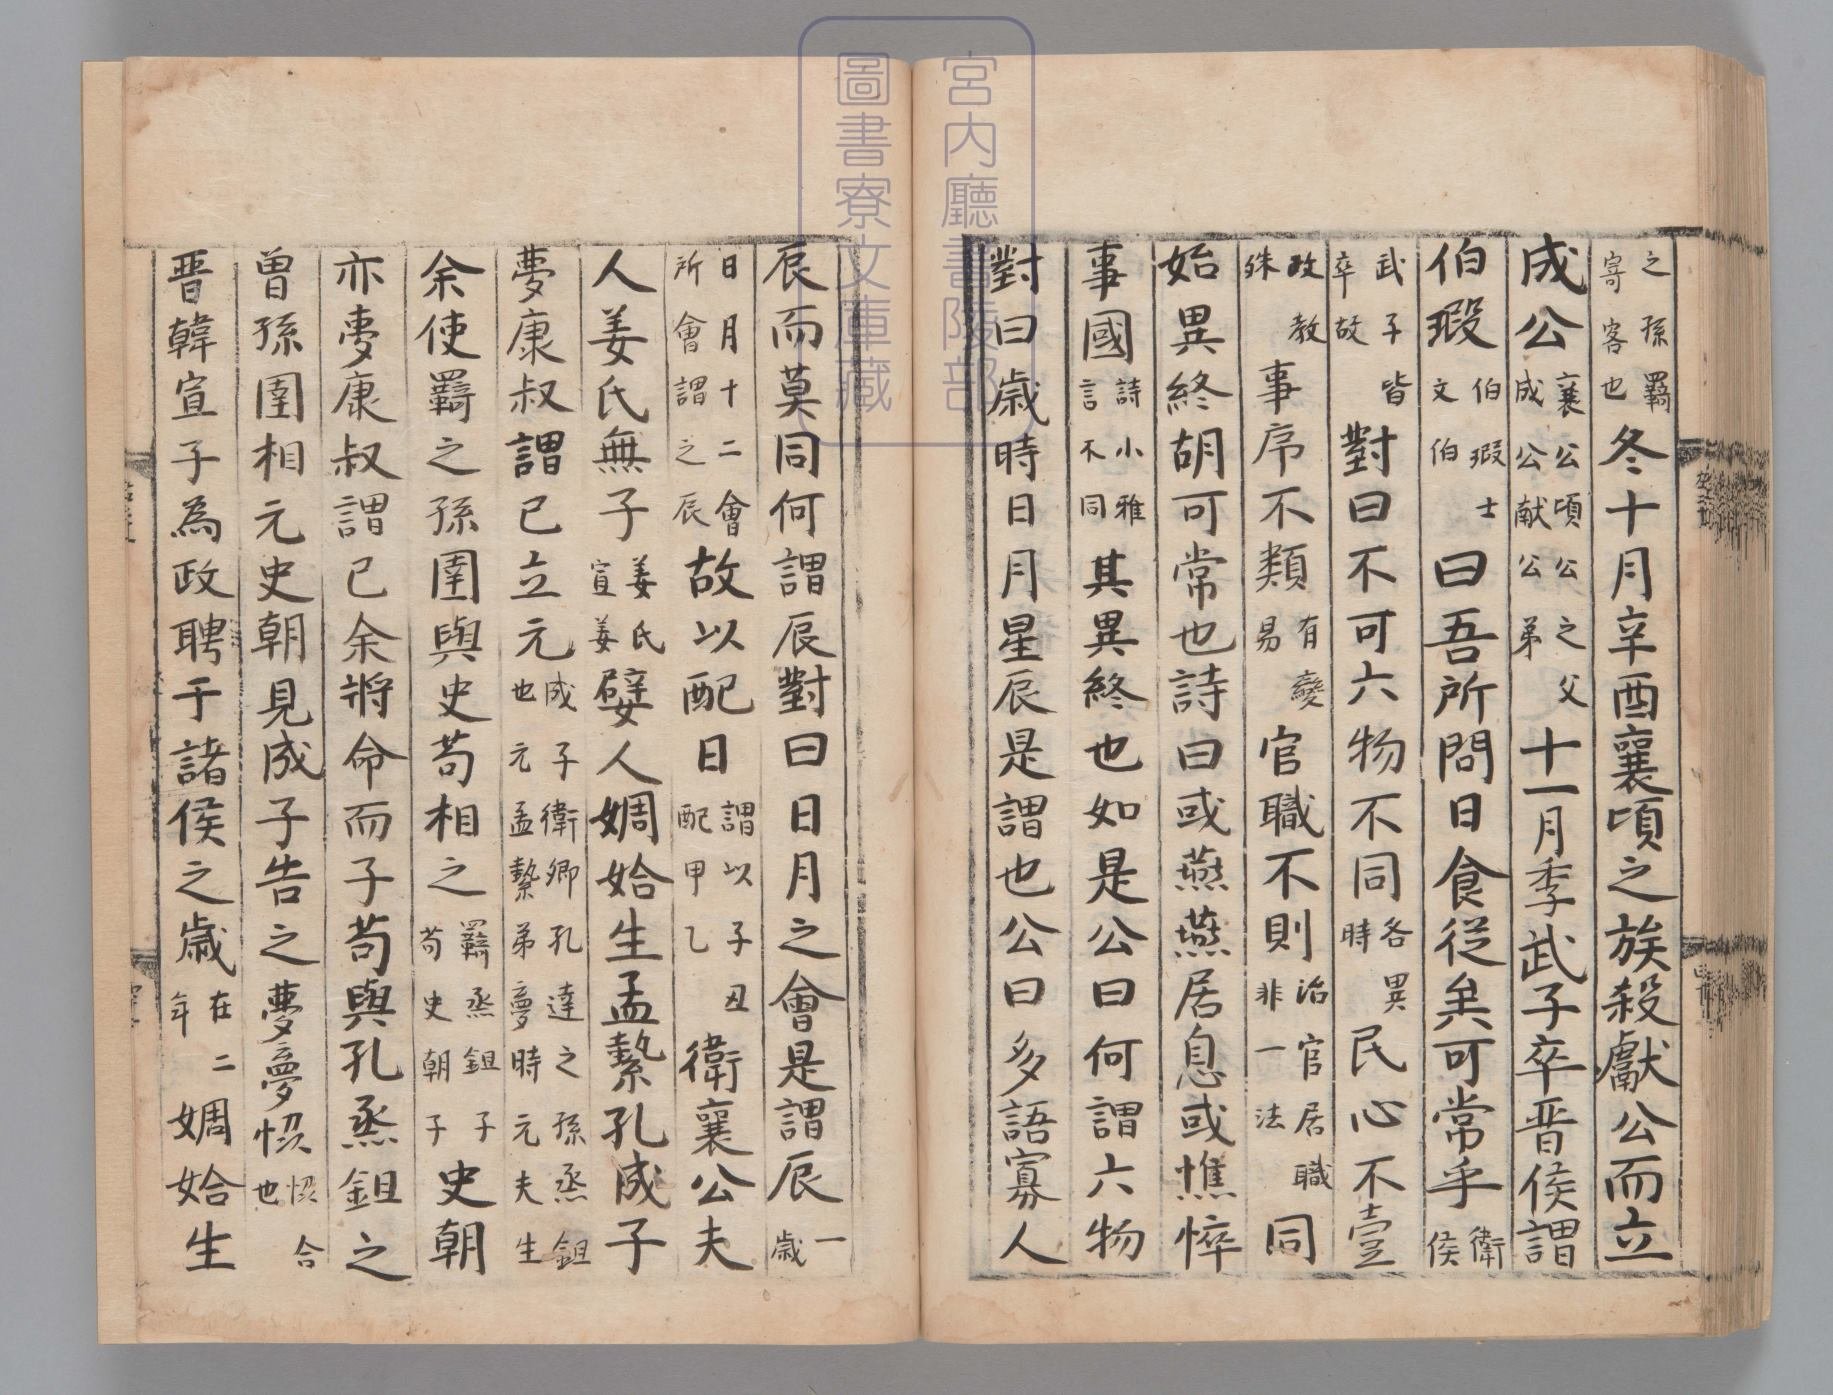 之孫羇寄客也冬十月辛酉襄頃之族殺獻公而立
成公襄公頃公之父成公献公弟十一月季武子卒晋侯謂
伯瑕伯瑕士文伯曰吾所問日食從矣可常乎衛侯
武子皆卒故對曰不可六物不同各異時民心不壹
政教殊事序不類有變易官職不則治官居職非一法同
始異終胡可常也詩曰或燕燕居息或憔悴
事國詩小雅言不同其異終也如是公曰何謂六物
對曰歲時日月星辰是謂也公曰多語寡人
辰而莫同何謂辰對曰日月之會是謂辰一歲
日月十二會所會謂之辰故以配日謂以子丑配甲乙衛襄公夫
人姜氏無子姜氏宣姜嬖人婤姶生孟縶孔成子
夢康叔謂已立元成子衛卿孔達之孫烝鉏也元孟縶弟夢時元夫生
余使羇之孫圉與史苟相之羇烝鉏子苟史朝子史朝
亦夢康叔謂已余將命而子苟與孔烝鉏之
曾孫圉相元史朝見成子告之夢夢恊恊合也
晋韓宣子為政聘于諸侯之歲在二年婤姶生
宮内廳書陵部
圖書寮文庫藏